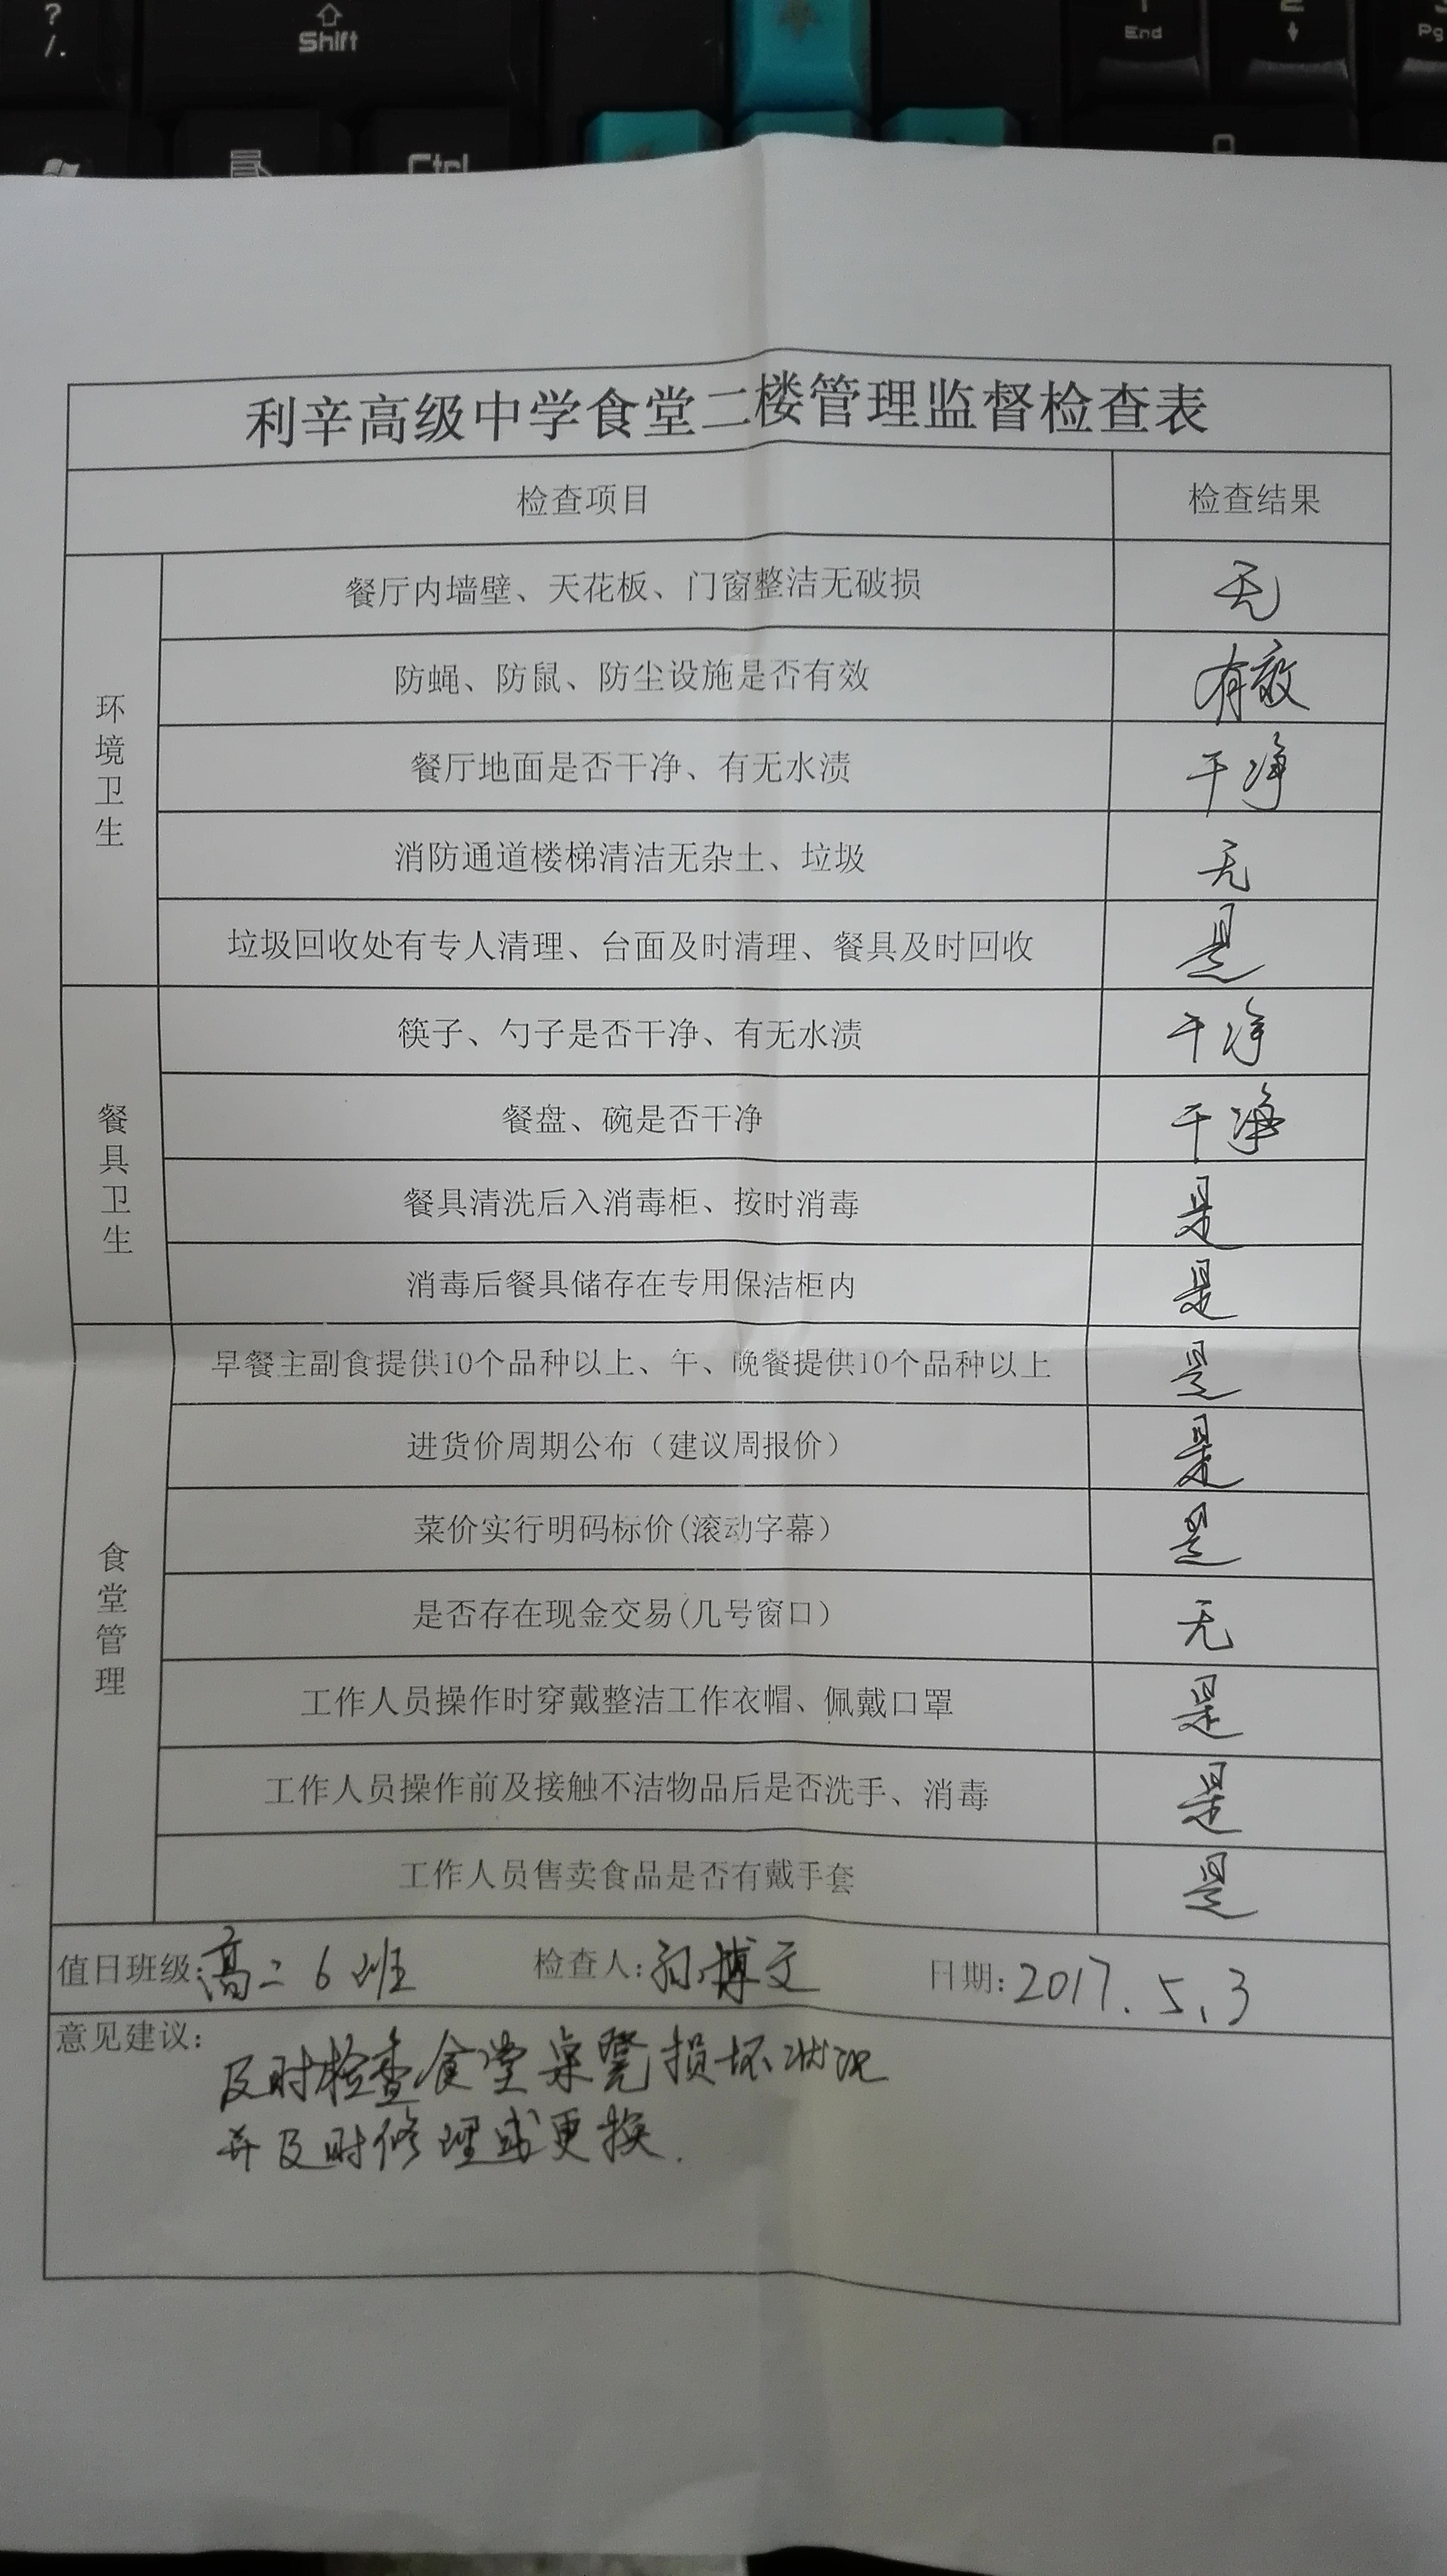 ? Shift End 2 Pg
/.
Ctrl
利辛高级中学食堂二楼管理监督检查表
检查项目 检查结果
环境卫生
餐厅内墙壁、天花板、门窗整洁无破损 无
防蝇、防鼠、防尘设施是否有效 有效
餐厅地面是否干净、有无水渍 干净
消防通道楼梯清洁无杂土、垃圾 无
垃圾回收处有专人清理、台面及时清理、餐具及时回收 是
餐具卫生
筷子、勺子是否干净、有无水渍 干净
餐盘、碗是否干净 干净
餐具清洗后入消毒柜、按时消毒 是
消毒后餐具储存在专用保洁柜内 是
食堂管理
早餐主副食提供10个品种以上、午、晚餐提供10个品种以上 是
进货价周期公布（建议周报价） 是
菜价实行明码标价(滚动字幕） 是
是否存在现金交易(几号窗口） 无
工作人员操作时穿戴整洁工作衣帽、佩戴口罩 是
工作人员操作前及接触不洁物品后是否洗手、消毒 是
工作人员售卖食品是否有戴手套 是
值日班级:高二6班 检查人:孙博文 日期:2017.5.3
意见建议:
及时检查食堂桌凳损坏状况
并及时修理或更换.